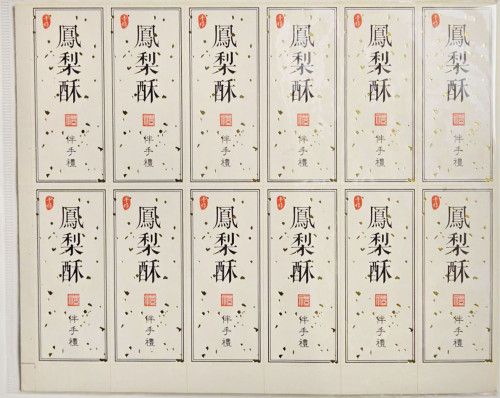 鳳梨酥
伴手禮
鳳梨酥
伴手禮
鳳梨酥
伴手禮
鳳梨酥
伴手禮
鳳梨酥
伴手禮
鳳梨酥
伴手禮
鳳梨酥
伴手禮
鳳梨酥
伴手禮
鳳梨酥
伴手禮
鳳梨酥
伴手禮
鳳梨酥
伴手禮
鳳梨酥
伴手禮